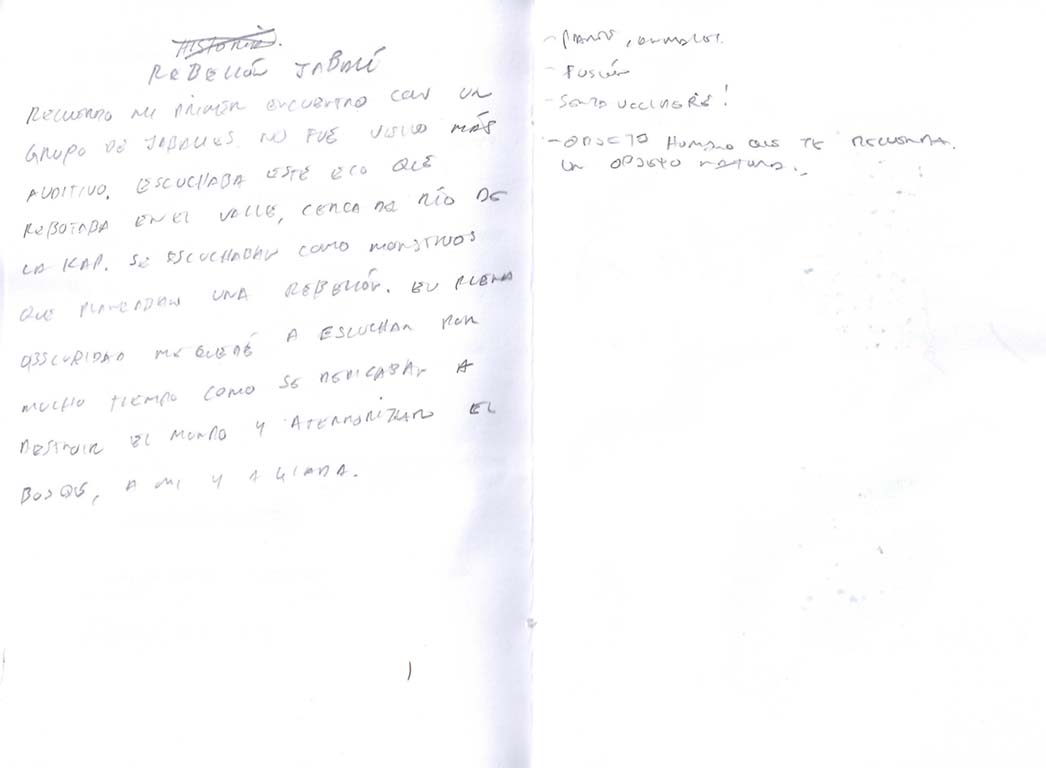 HISTORIA.
REBELIÓN JABALÍ
RECUERDO MI PRIMER ENCUENTRO CON UN
GRUPO DE JABALIES. NO FUE VISUO MÁS
AUDITIVO. ESCUCHABA ESTE ECO QUE
REBOTABA EN EL VALLE, CERCA DE RÍO DE
LA KAP. SE ESCUCHABAN COMO MONSTRUOS
QUE PLANEABAN UNA REBELIÓN. EN PLENA
OBSCURIDAD ME QUEDÉ A ESCUCHAR POR
MUCHO TIEMPO COMO SE DEDICABAN A
DESTRUIR EL MUNDO Y ATERRORIZAR EL
BOSQUE, A MI Y A GIADA.
- FUSIÓN
-
- OBJETO HUMANO QUE TE RECUERDA
UN OBJETO NATURAL.